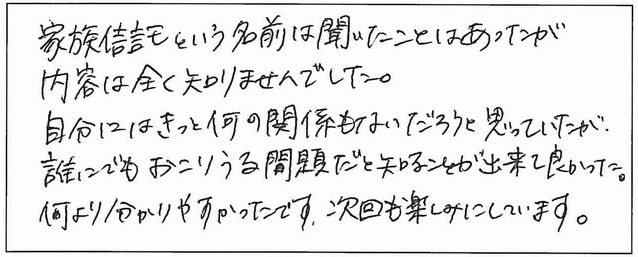 家族信託という名前は聞いたことはあったが
内容は全く知りませんでした。
自分にはきっと何の関係もないだろうと思っていたが、
誰にでもおこりうる問題だと知ることが出来て良かった。
何より分かりやすかったです、次回も楽しみにしています。